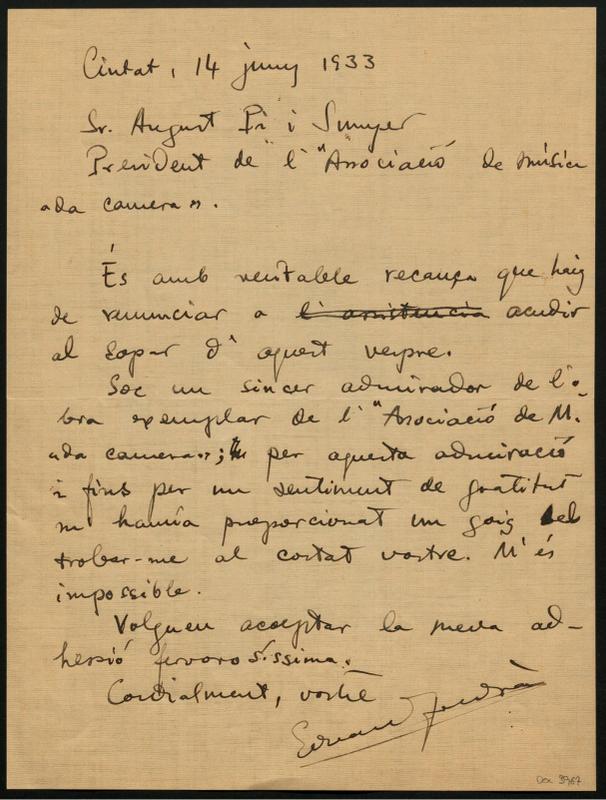 Ciutat, 14 juny 1933
Sr. August Pi i Sunyer
President de l' "Associació de música
"da camera".
És amb veritable recança que haig
de renunciar a l'assistencia acudir
al sopar d'aquest vespre.
Soc un sincer admirador de l'o-
bra exemplar de l' "Associació de M.
"da camera"; per aquesta admiració
i fins per un sentiment de gratitut
m'hauría proporcionat un goig el
trobar-me al costat vostre. M'és
impossible.
Volgueu acceptar la meva ad-
hesió fervorosíssima.
Cordialment, vostre
Doc 3967